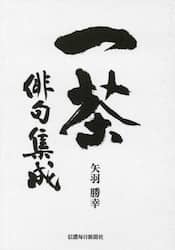 一茶
俳句集成
矢羽 勝幸
信濃毎日新聞社